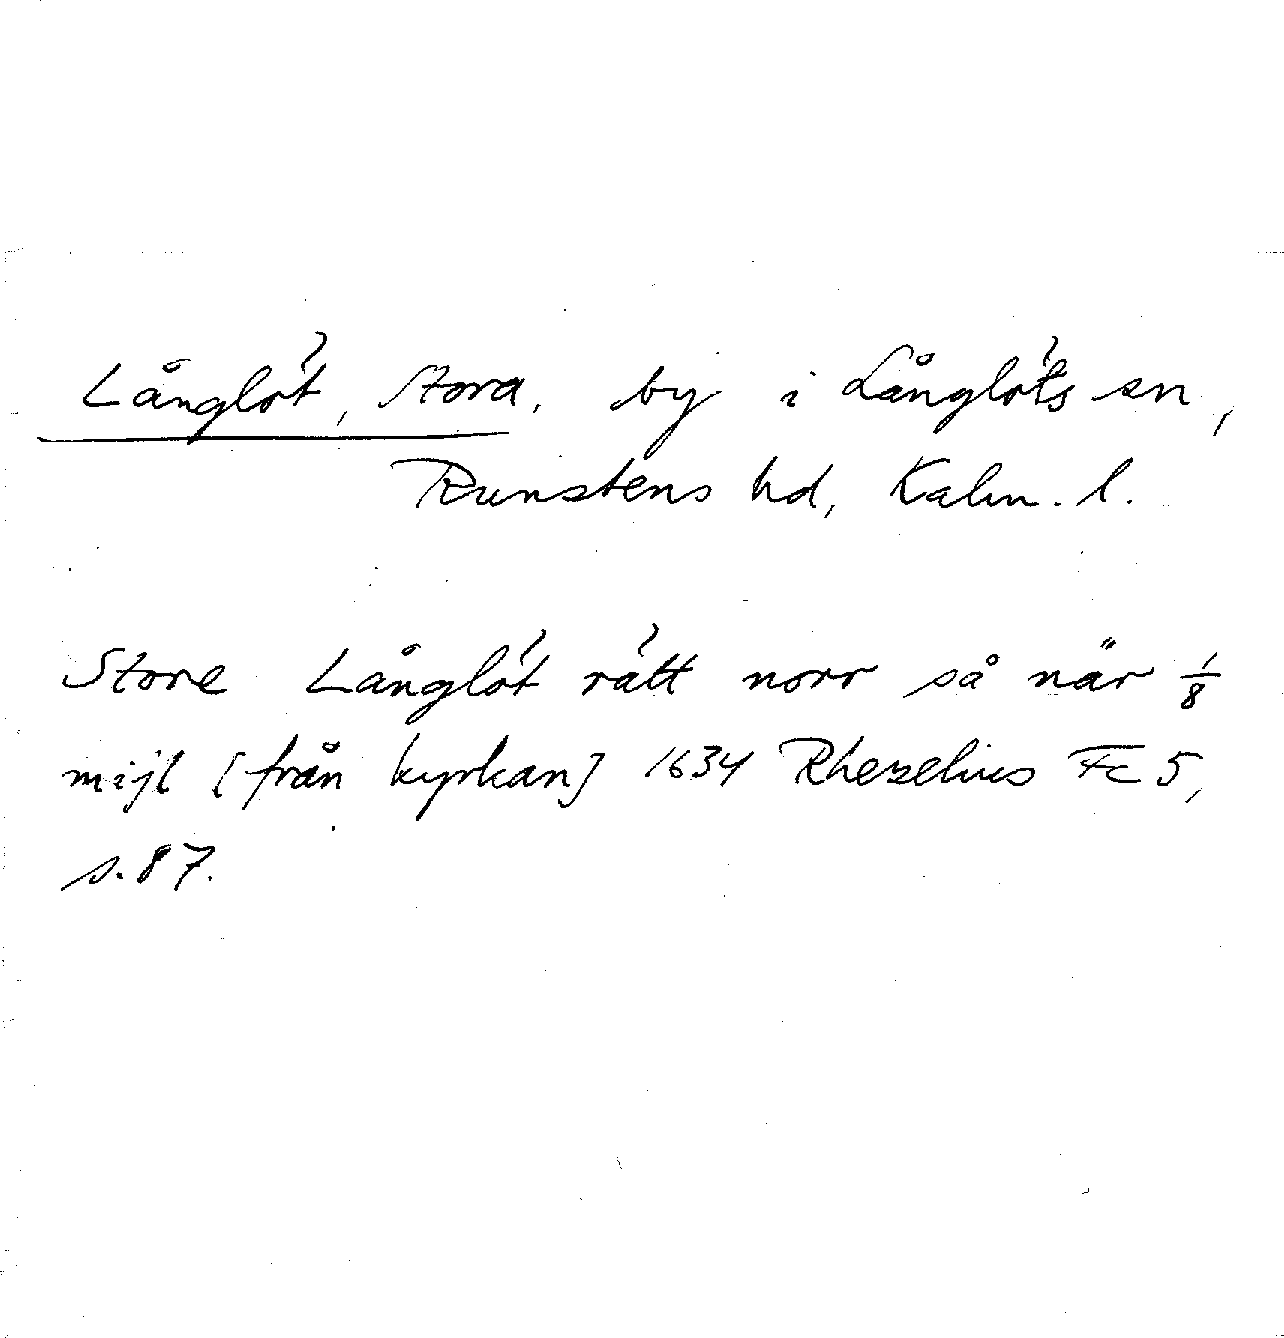 Långlöt, Stora, by i Långlöts sn,
Runstens hd, Kalm. l.
Store Långlöt rätt norr så när 1/8
mijl [från kyrkan] 1634 Rhezelius Fc 5,
s. 87.